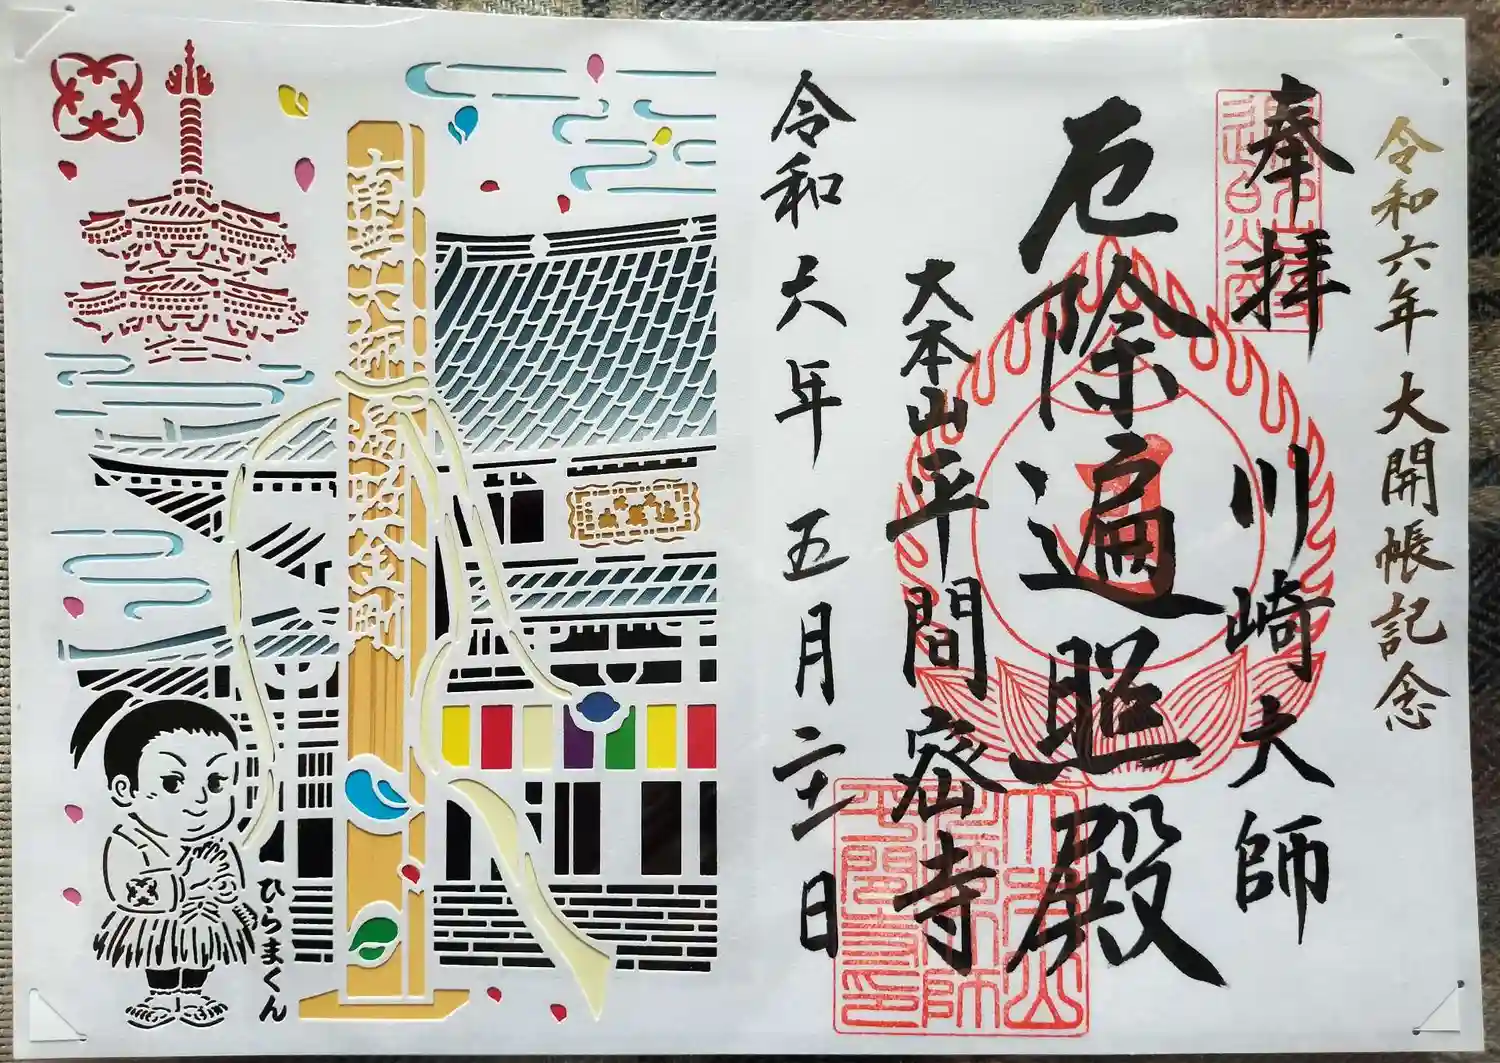 令和六年 大開帳記念
奉拝
川崎大師
厄除遍照殿
大本山平間密寺
令和六年五月二十一日
南無大師遍照金剛
ひらまくん